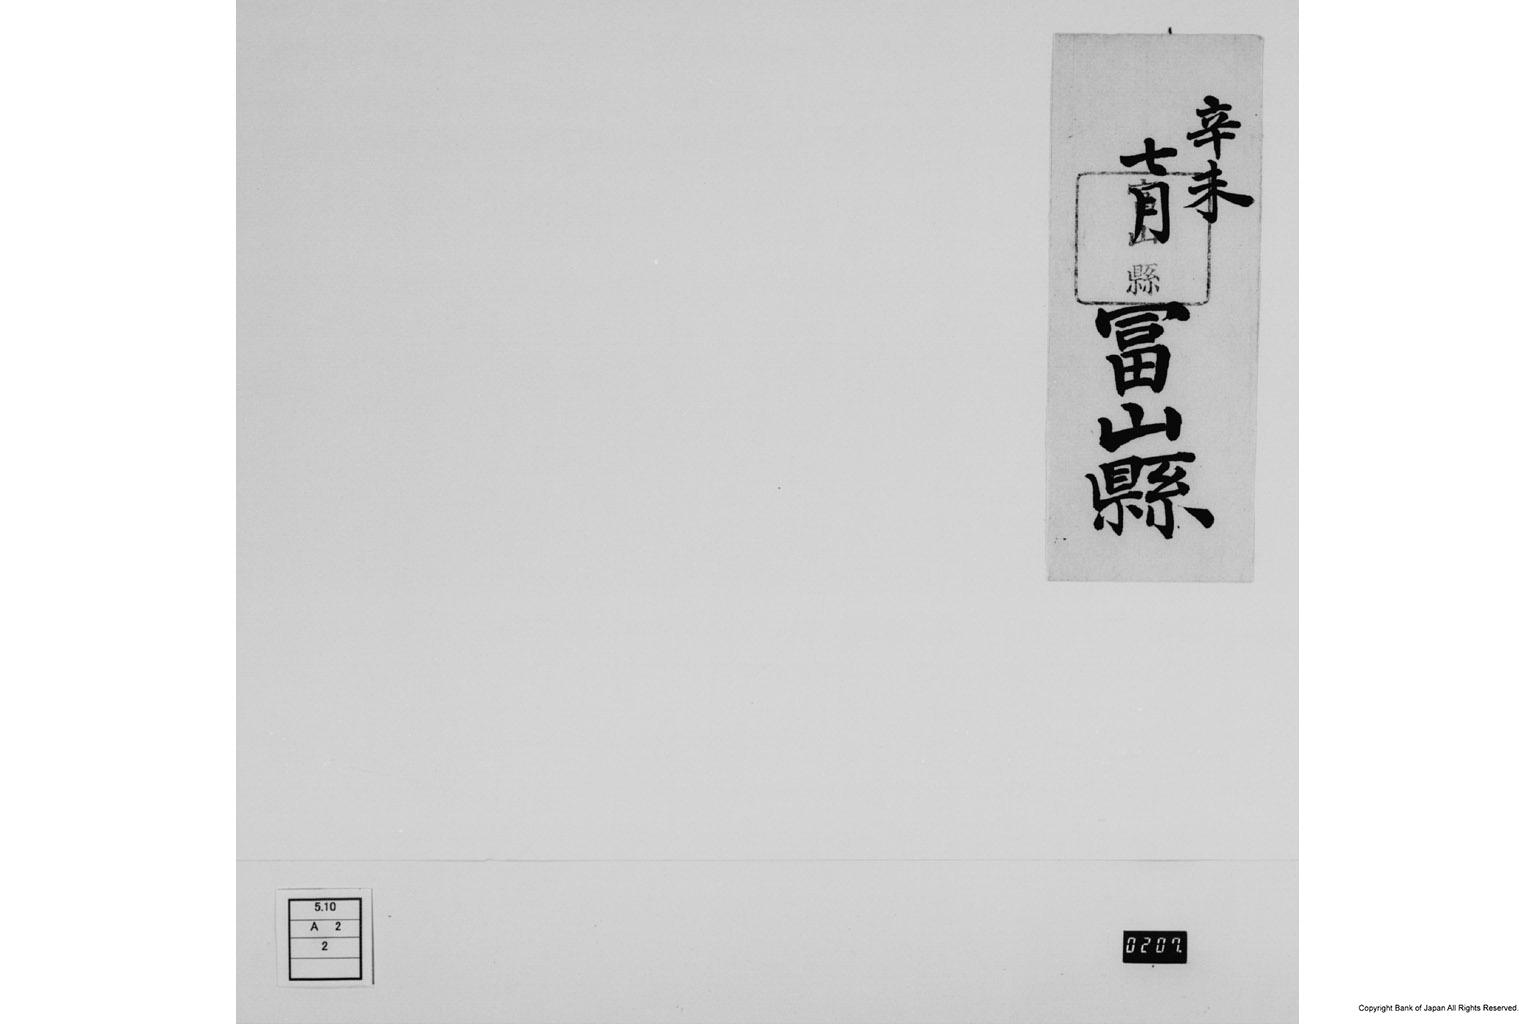 辛未
七月
富山縣
富山縣
5.10
A 2
2
0207
Copyright Bank of Japan All Rights Reserved.